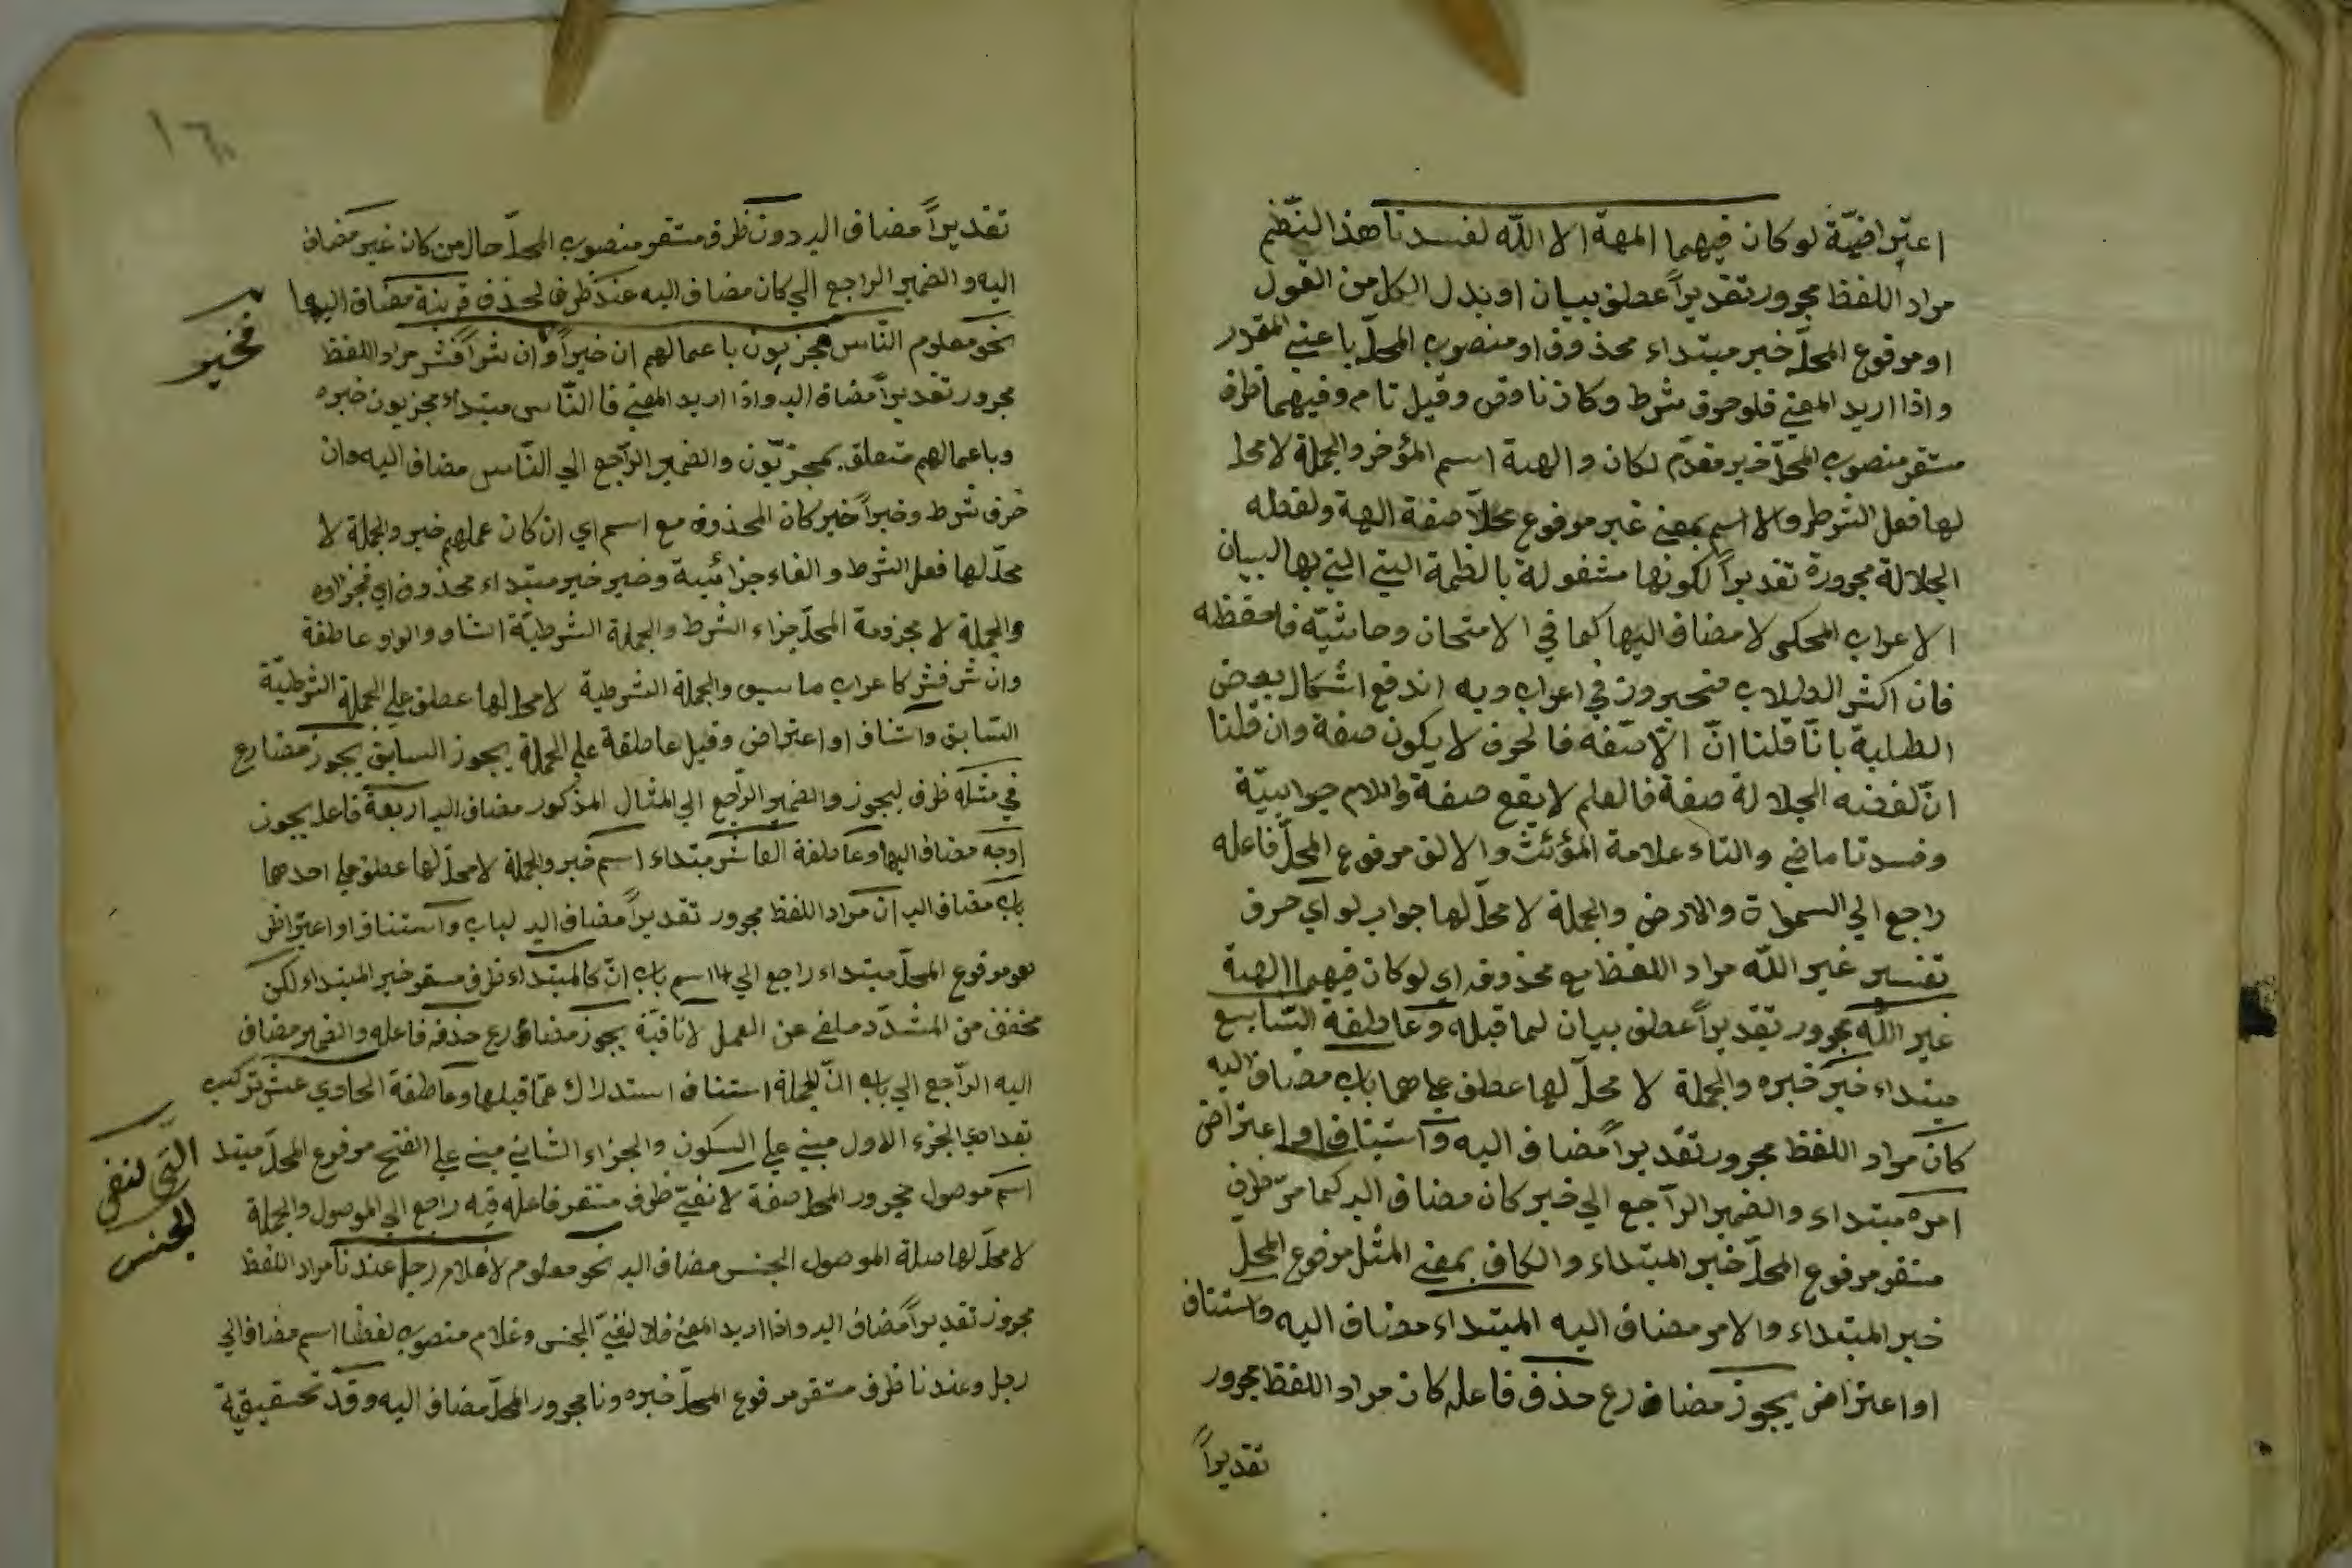 اعتراضيّة لو كان فيهما الهة الا اللّه لفسدتا هذا النّظم
مراد اللفظ مجرور تقديراً عطف بيان او بدل الكل من القول
او مرفوع المحلّ خبر مبتداء محذوف او منصوب المحلّ باعني المقدر
واذا اريد المعني فلو حرف شرط وكان ناقص وقيل تام وفيهما ظرف
مستقر منصوب المحلّ خبر مقدّم لكان والهة اسم المؤخر والجملة لا محل
لها فعل الشرط والا اسم بمعني غير مرفوع محلاً صفة الهة ولفظه
الجلالة مجرورة تقديراً لكونها مشغولة بالظمة التي التي بها البيان
الاعراب المحكى لا مضاف اليها كما في الامتحان وحاشيّة فاحفظه
فان اكثر الطلاب متحيرون في اعرابه وبه اندفع اشكال بعض
الطلبة بانّا قلنا انّ الّا صفه فالحرف لا يكون صفة وان قلنا
انّ لفظه الجلالة صفة فالعلم لا يقع صفة واللام جوابيّة
وفسدتا ماضي والتاء علامة المؤنّث والالف مرفوع المحلّ فاعله
راجع الي السموات والارض والجملة لا محلّ لها جواب لو اي حرف
تفسير غير اللّه مراد اللفظ مع محذوفه اي لو كان فيهما الهة
غير اللّه مجرور تقديراً عطف بيان لما قبله وعاطفة السّابع
مبتداء خبر خبره والجملة لا محلّ لها عطف علي احدهما باب مضاف اليه
كان مراد اللفظ مجرور تقديراً مضاف اليه واستيناف او اعتراض
امره مبتداء والضمير الرّاجع الي خبر كان مضاف اليه كما مرّ ظرف
مستقر مرفوع المحلّ خبر المبتداء والكاف بمعني المثل مرفوع المحلّ
خبر المبتداء والامر مضاف اليه المبتداء مضاف اليه واستناف
او اعتراض يجوز مضارع حذف فاعله كان مراد اللفظ مجرور
تقديراً
تقديراً مضاف اليه دون ظرف مستقر منصوب المحلّ حال من كان غير مضاف
اليه والضمير الراجع الي كان مضاف اليه عند ظرف لحذف قرينة مضاف اليها
نحو معلوم النّاس مجزيون باعمالهم ان خيراً وان شراً فشر مراد اللفظ
فخير
مجرور تقديراً مضاف اليه واذا اريد المعني فالنّاس مبتداء مجزيون خبره
وباعمالهم متعلق بمجزيّون والضمير الرّاجع الي النّاس مضاف اليه وان
حرف شرط وخيراً خبر كان المحذوف مع اسم اي ان كان عملهم خير والجملة لا
محلّ لها فعل الشرط والفاء جزائية وخير خبر مبتداء محذوف اي فجزاؤه
والجملة لا مجزومة المحلّ جزاء الشرط والجملة الشرطيّة انشاو والواو عاطفة
وان شر فشر كاعراب ما سبق والجملة الشرطية لا محل لها عطف علي الجملة الشرطيّة
السّابق واشناف او اعتراض وقيل عاطفة علي الجملة يجوز السابق يجوز مضارع
في مثله ظرف ليجوز والضمير الرّاجع الي المثال المذكور مضاف اليه اربعة فاعل يجوز
اوجه مضاف اليها وعاطفة العاشر مبتداء اسم خبر والجملة لا محلّ لها عطف علي احدهما
باب مضاف اليه انّ مراد اللفظ مجرور تقديراً مضاف اليه لباب واستناف او اعتراض
هو مرفوع المحلّ مبتداء راجع الي اسم باب انّ كالمبتداء ظرف مستقر خبر المبتداء لكن
مخفف من المشدّد ملغي عن العمل لا نافيّة يجوز مضارع حذفه فاعله والضمير مضاف
اليه الرّاجع الي باب انّ للجملة استناف استدراك عمّا قبلها وعاطفة الحادي عشر تركيب
تعدادي الجزء الاول مبني علي السكون والجزاء الثاني مبني علي الفتح مرفوع المحلّ مبتد
التي لنفي
الجنس
اسم موصول مجرور المحل صفة لا نفيّ ظرف مستقر فاعله فيه راجع الي الموصول والجملة
لا محلّ لها صلة الموصول الجنس مضاف اليه نحو معلوم لا غلام رجل عندنا مراد اللفظ
مجرور تقديراً مضاف اليه واذا اريد المعني فلا لنفيّ الجنس وغلام منصوب لفظا اسم مضاف الي
رجل وعندنا ظرف مستقر مرفوع المحلّ خبره ونا مجرور المحلّ مضاف اليه وقد تحقيقيّة